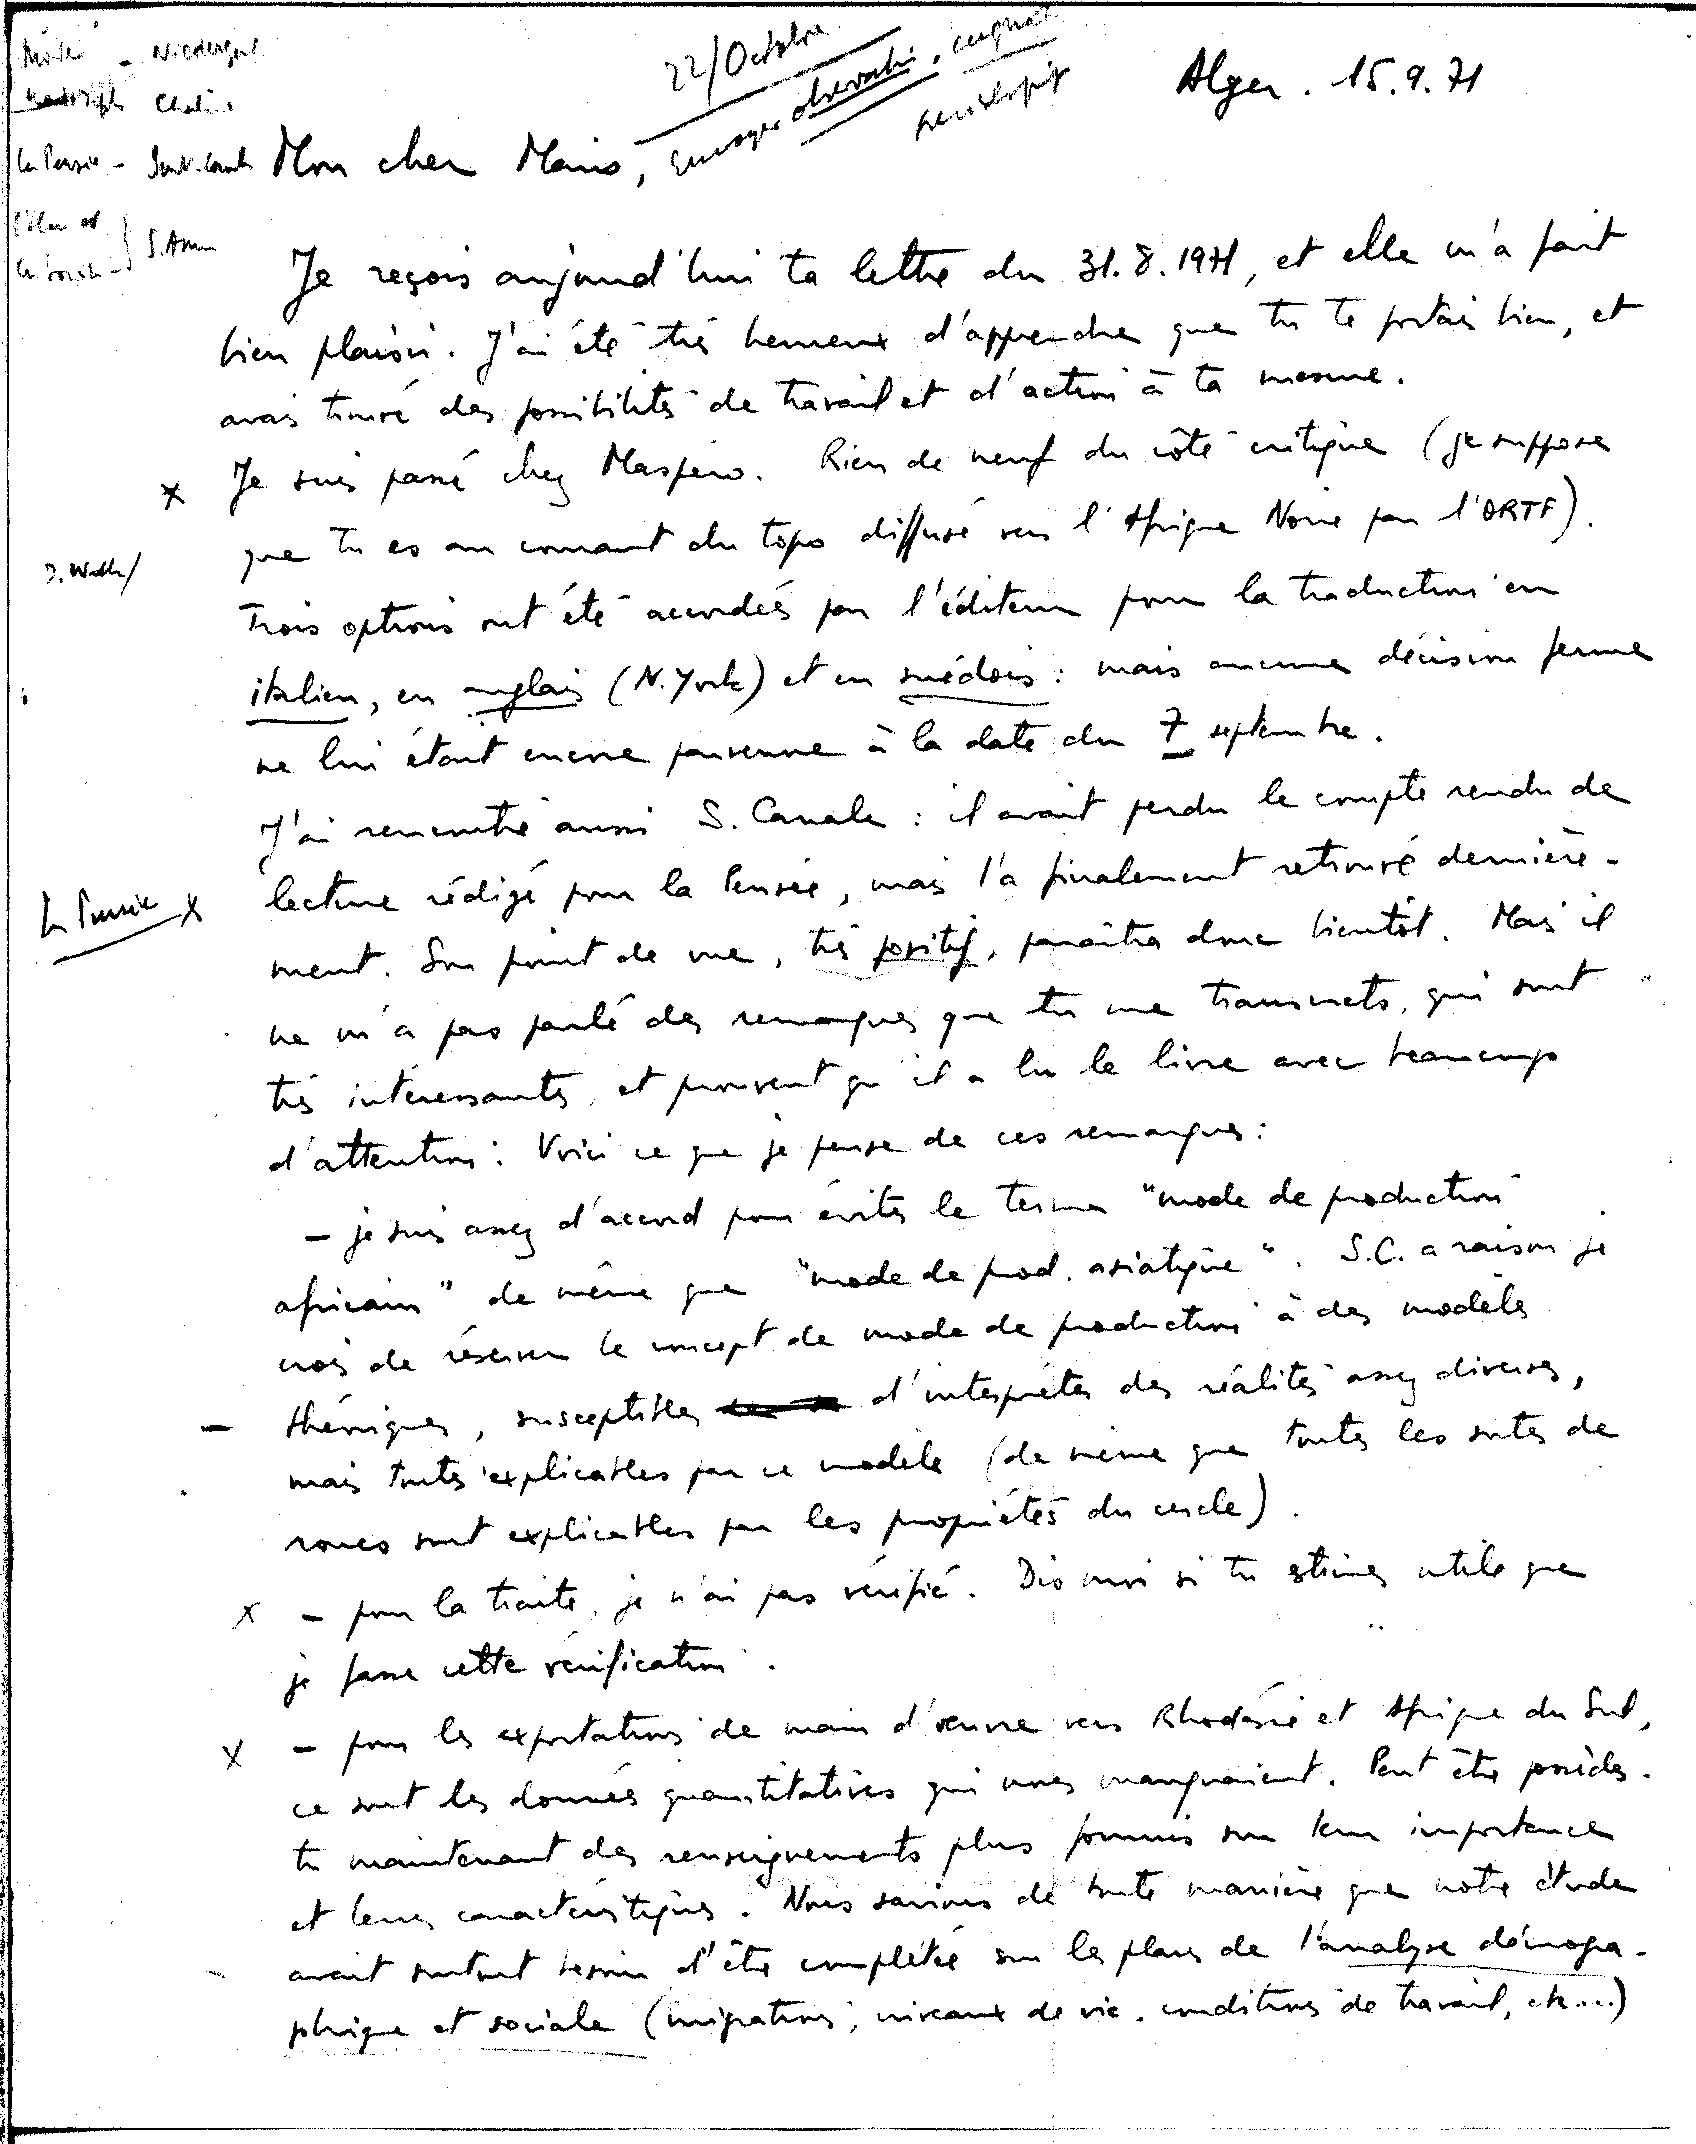 22/Octobre
Alger. 15.9.71
envoyer observations,
Mon cher Mario,
S. Amin
Je reçois aujourd'hui ta lettre du 31.8.1971, et elle m'a fait
bien plaisir. J'ai été très heureux d'apprendre que tu te portais bien, et
avais trouvé des possibilités de travail et d'action à ta mesure.
x Je suis passé chez Maspero. Rien de neuf du côté critique (je suppose
que tu es au courant du topo diffusé vers l'Afrique Noire par l'ORTF).
Trois options ont été accordées par l'éditeur pour la traduction en
italien, en anglais (N. York) et en suédois : mais aucune décision ferme
ne lui était encore parvenue à la date du 7 septembre.
J'ai rencontré aussi S. Canale : il avait perdu le compte rendu de
La Pensée x lecture rédigé pour la Pensée, mais l'a finalement retrouvé dernière-
ment. Son point de vue, très positif, paraîtra donc bientôt. Mais il
ne m'a pas parlé des remarques que tu me transmets, qui sont
très intéressantes, et prouvent qu'il a lu le livre avec beaucoup
d'attention. Voici ce que je pense de ces remarques :
- je suis assez d'accord pour éviter le terme "mode de production
africain" de même que "mode de prod. asiatique". S.C. a raison je
crois de réserver le concept de mode de production à des modèles
- théoriques, susceptibles d'interpréter des réalités assez diverses,
mais toutes explicables par ce modèle (de même que toutes les sortes de
roues sont explicables par les propriétés du cercle).
x - pour la traite, je n'ai pas vérifié. Dis moi si tu estimes utile que
je fasse cette vérification.
x - pour les exportations de main d'œuvre vers Rhodésie et Afrique du Sud,
ce sont les données quantitatives qui nous manquaient. Peut être possèdes-
tu maintenant des renseignements plus fournis sur leur importance
et leurs caractéristiques. Nous savions de toute manière que notre étude
avait surtout besoin d'être complétée sur le plan de l'analyse démogra-
phique et sociale (migrations, niveaux de vie, conditions de travail, etc...)